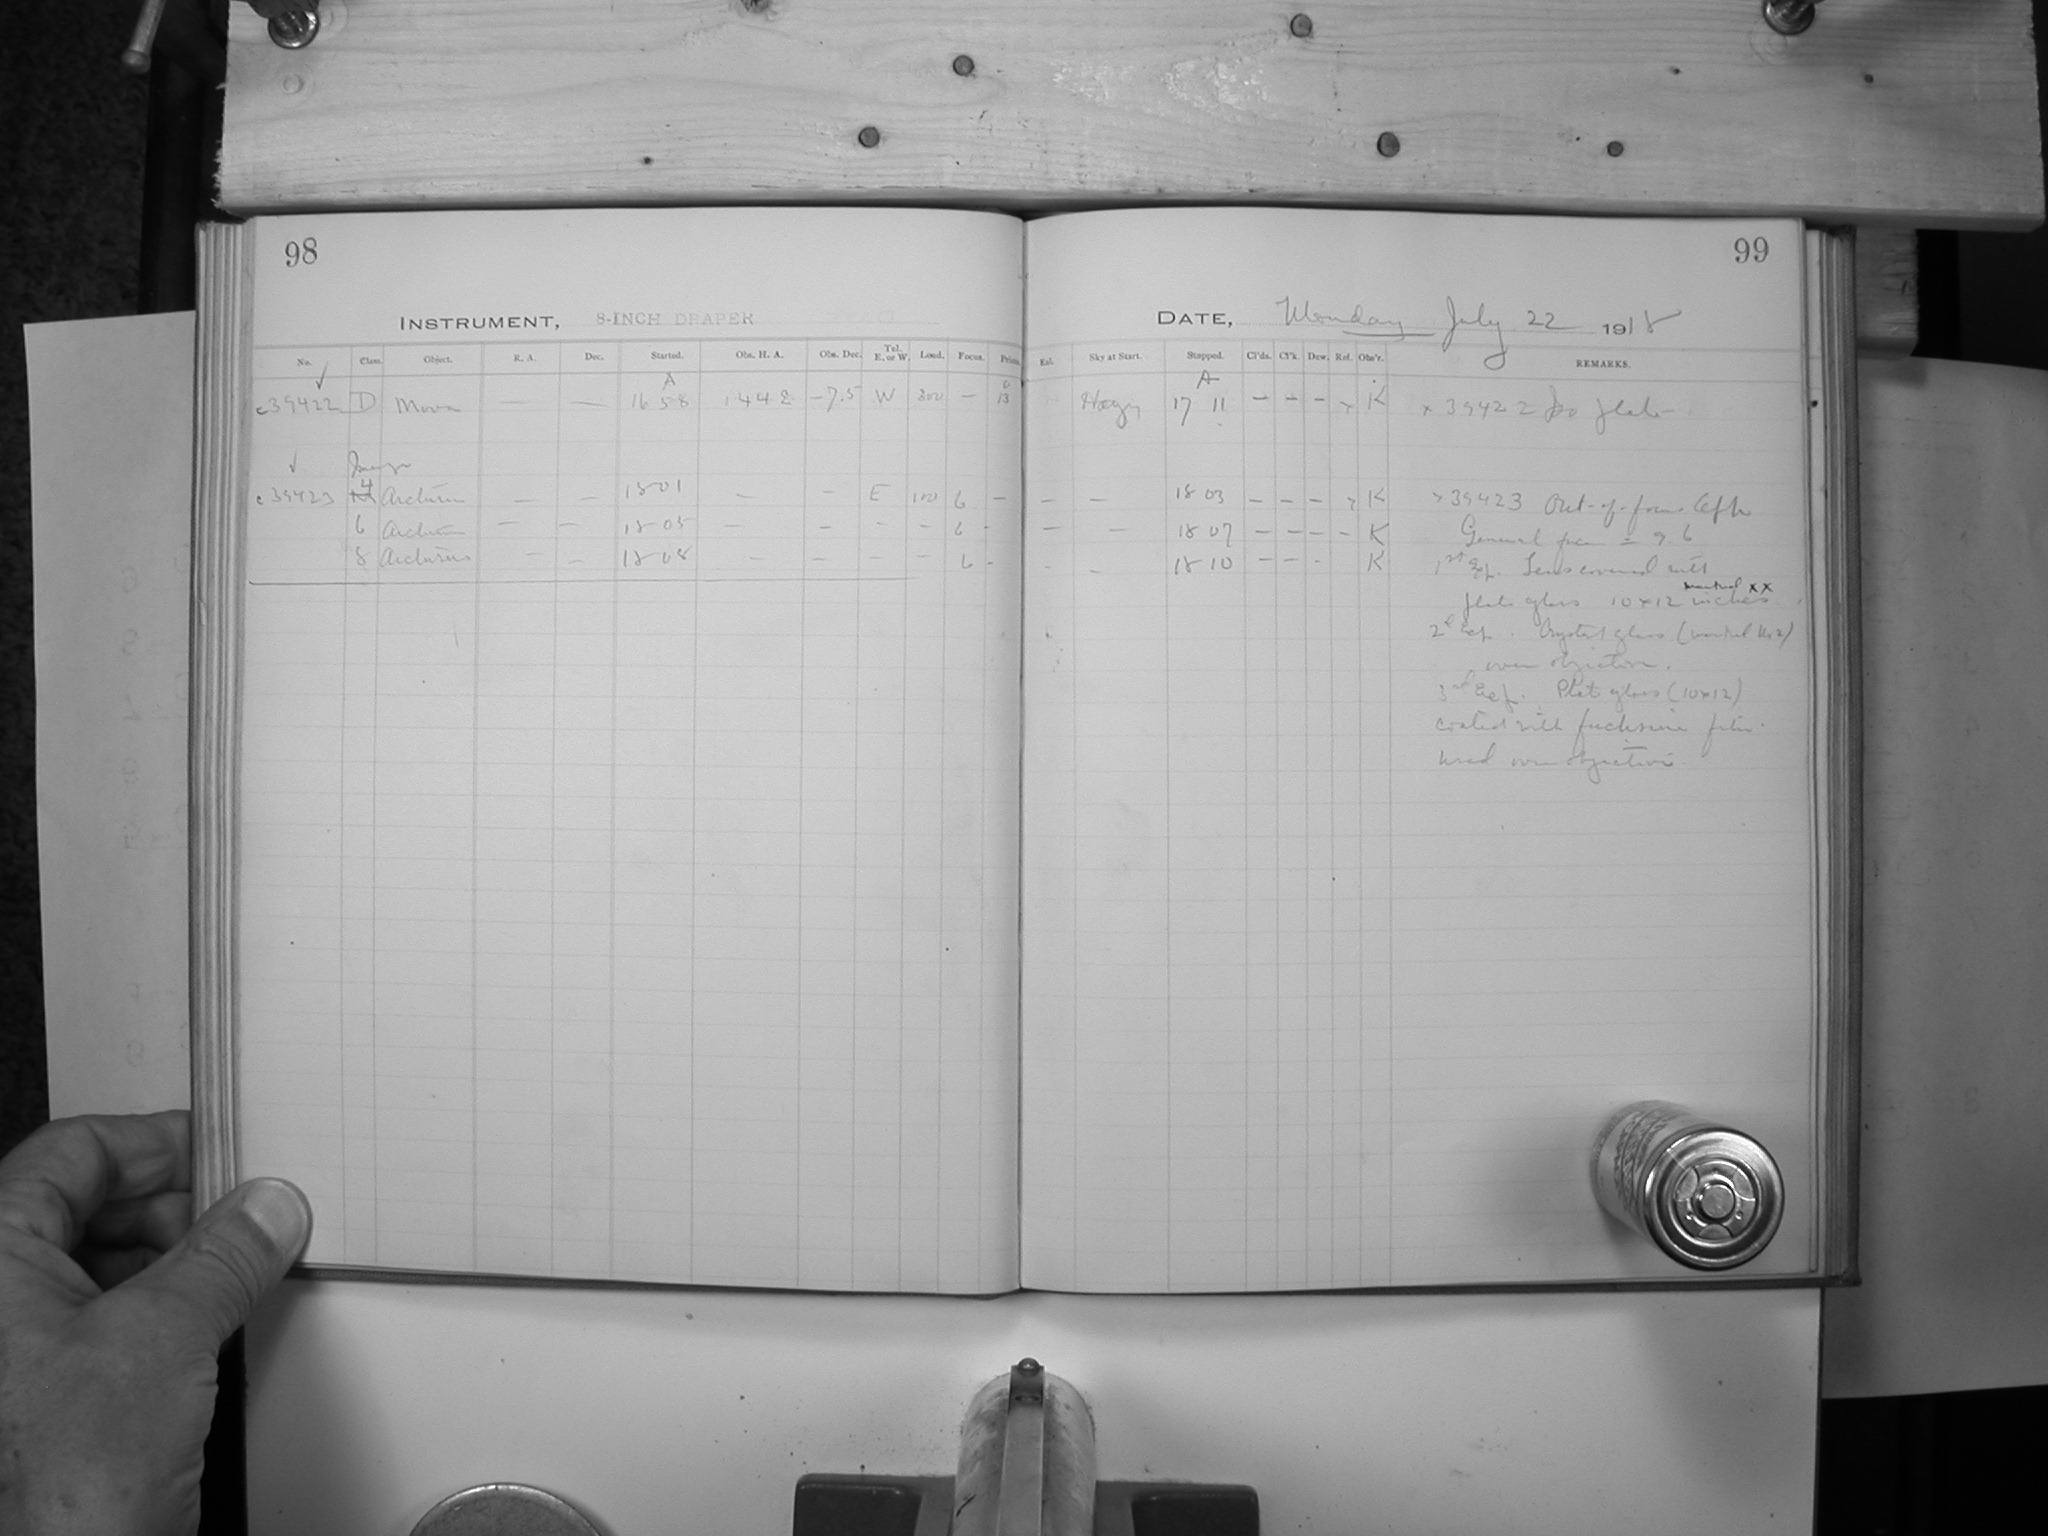 98
99
INSTRUMENT, 8-INCH DRAPER
DATE, Monday July 22 1918
No. Class. Object. R. A. Dec. Started. Obs. H. A. Obs. Dec. Tel. E. or W. Load. Focus. Prism.
Exl. Sky at Start. Stopped. Cl'ds. Cl'k. Dew. Ref. Obs'r. REMARKS.
A
A
c39422 D Nova — — 16 58 1 44 2 -7.5 W 300 — 13
Hazy 17 11 — — — x K x 39422 Iso plate
Image
c39423 4 Arcturus — — 18 01 — — E 100 6 —
— — 18 03 — — — x K x 39423 Out-of-focus
6 Arcturus — — 18 05 — — - - 6 -
— — 18 07 — — — — K General focus = 9.6
8 Arcturus — — 18 08 — — — — 6 -
- - 18 10 — — - K 1st Exp. Lens covered with
marked xx
plate glass 10x12 inches.
2d Exp. Crystal glass (marked No 2)
over objective.
3rd Exp. Plate glass (10x12)
coated with fuchsine film
used over objective